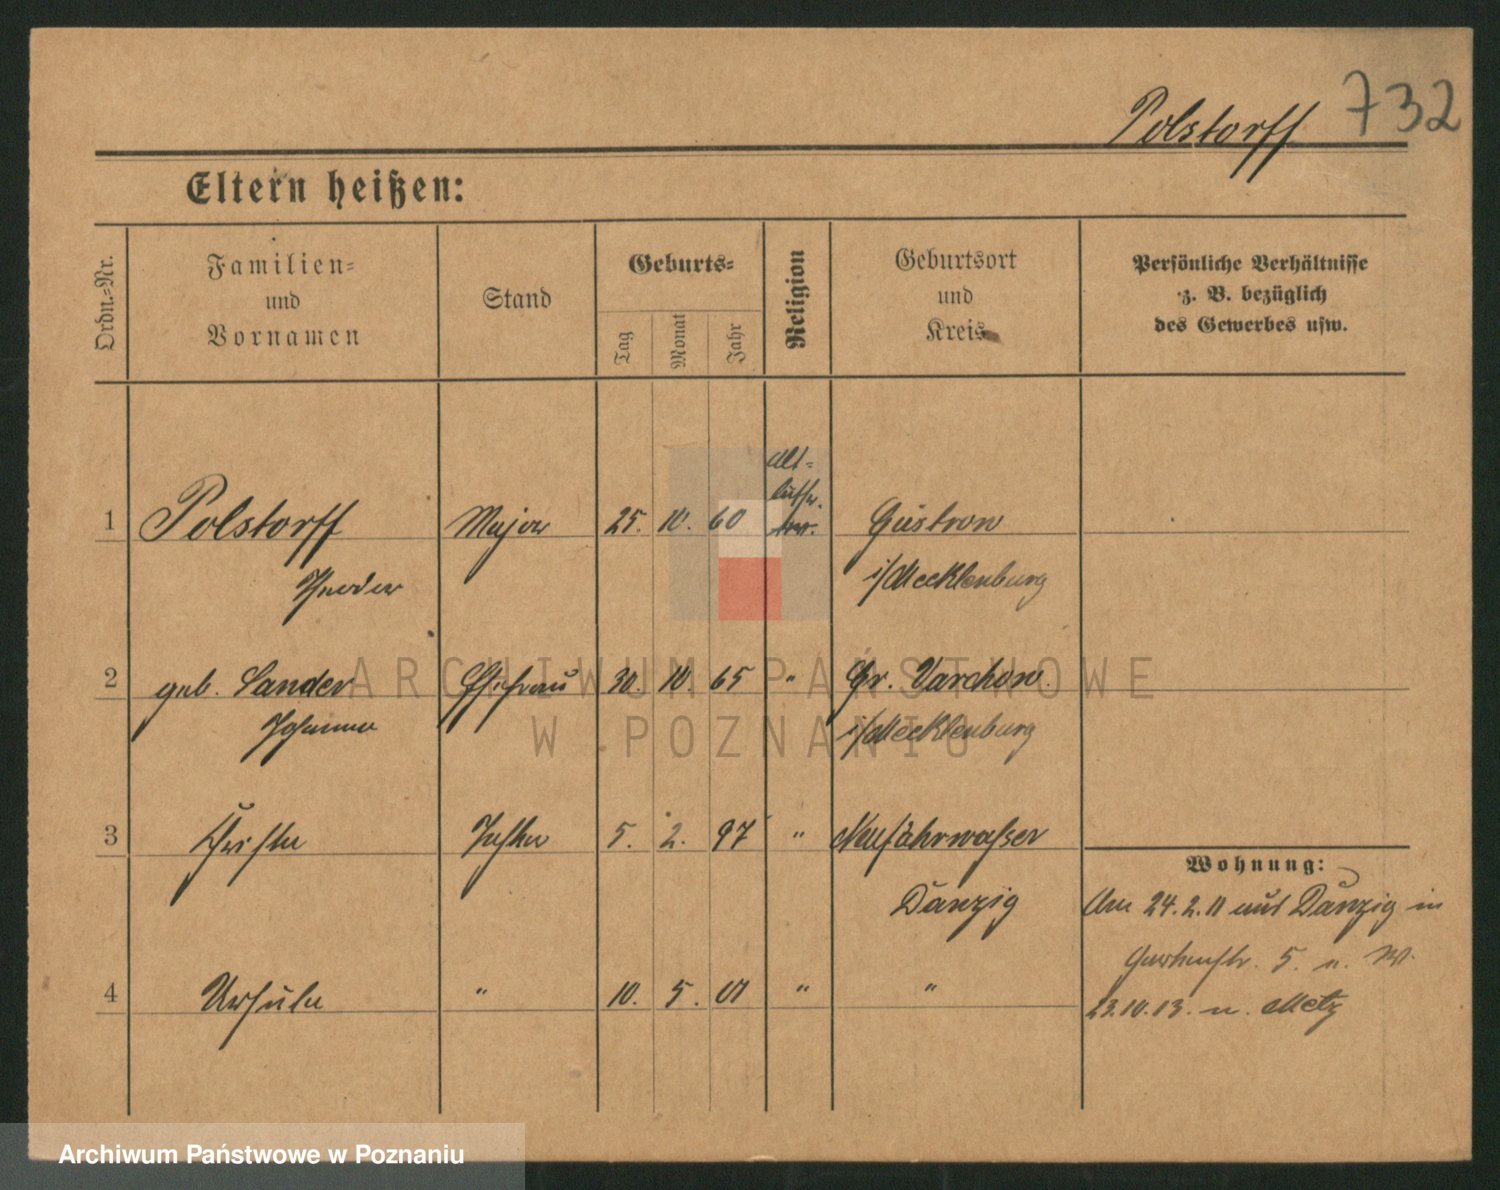 Polstorff 732
Eltern heißen:
Ordn.-Nr.
Familien-
und
Vornamen
Stand
Geburts-
Tag
Monat
Jahr
Religion
Geburtsort
und
Kreis
Persönliche Verhältnisse
z. B. bezüglich
des Gewerbes usw.
alt-
luthe.
1 Polstorff Major 25. 10. 60 Güstrow
Theodor i/Mecklenburg
2 geb. Sander Ehefrau 30. 10. 65 " Gr. Varchow.
Johanna i/Mecklenburg
3 Tochter 5. 2. 97 " Neufahrwasser
Danzig
4 Ursula " 10. 5. 01 " "
Wohnung:
Am 24.2.11 aus Danzig in
5. n. W.
23.10.13. n. Metz
ARCHIWUM PAŃSTWOWE
W POZNANIU
Archiwum Państwowe w Poznaniu